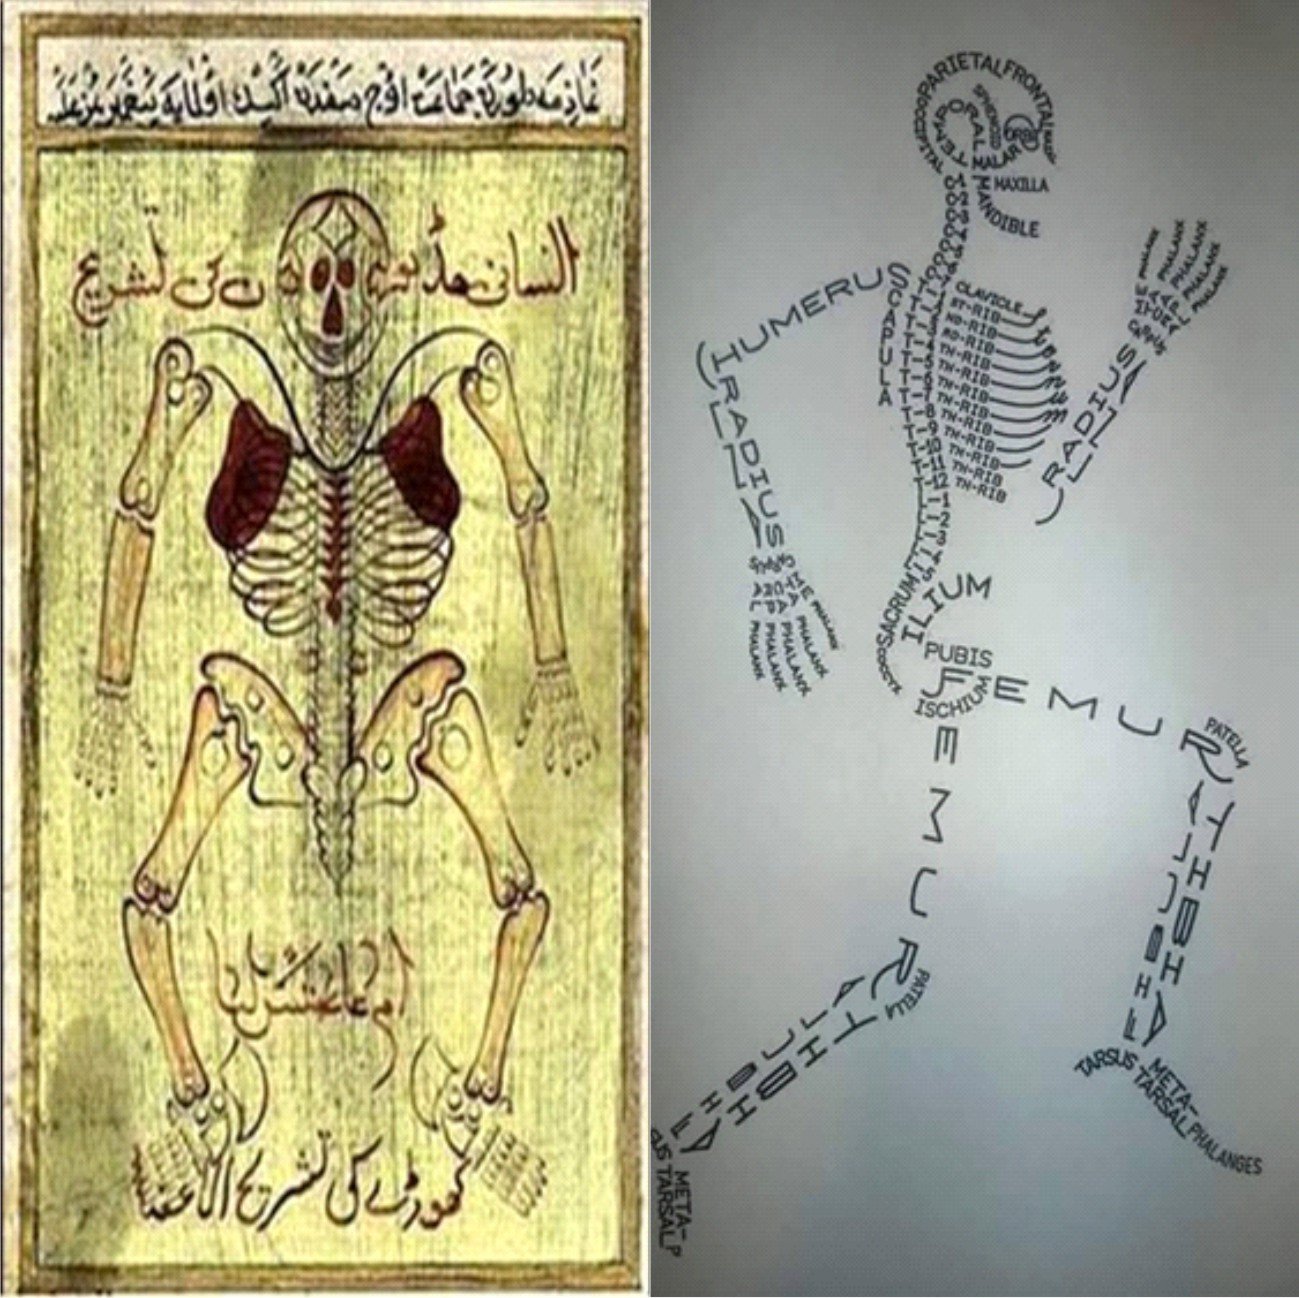 جماعت اوج صفدن اكسك اولمايه
کی تشریح
کھوڑے کی تشریح الاعضا
PARIETAL
FRONTAL
OCCIPITAL
TEMPORAL
SPHENOID
ORBIT
NASAL
MALAR
MAXILLA
MANDIBLE
C-1
C-2
C-3
C-4
HUMERUS
SCAPULA
CLAVICLE
ST-RIB
ND-RIB
RD-RIB
TH-RIB
TH-RIB
TH-RIB
TH-RIB
TH-RIB
TH-RIB
TH-RIB
TH-RIB
TH-RIB
T-8
T-9
T-10
T-11
T-12
Sternum
RADIUS
ULNA
CARPUS
PHALANX
PHALANX
PHALANX
PHALANX
PHALANX
RADIUS
ULNA
CARPUS
META
CARPAL
PHALANX
PHALANX
PHALANX
PHALANX
PHALANX
SACRUM
COCCYX
ILIUM
PUBIS
ISCHIUM
FEMUR
PATELLA
TIBIA
FIBULA
TARSUS
META-
TARSAL
PHALANGES
FEMUR
PATELLA
TIBIA
FIBULA
SUS
META-
TARSAL
P